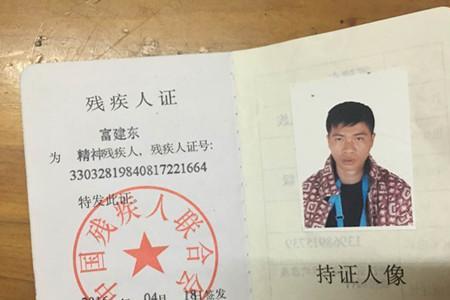 残疾人证
富建东
为 精神残疾人，残疾人证号：
33032819840817221664
特发此证。
中国残疾人联合会
04月 18日签发
持证人像